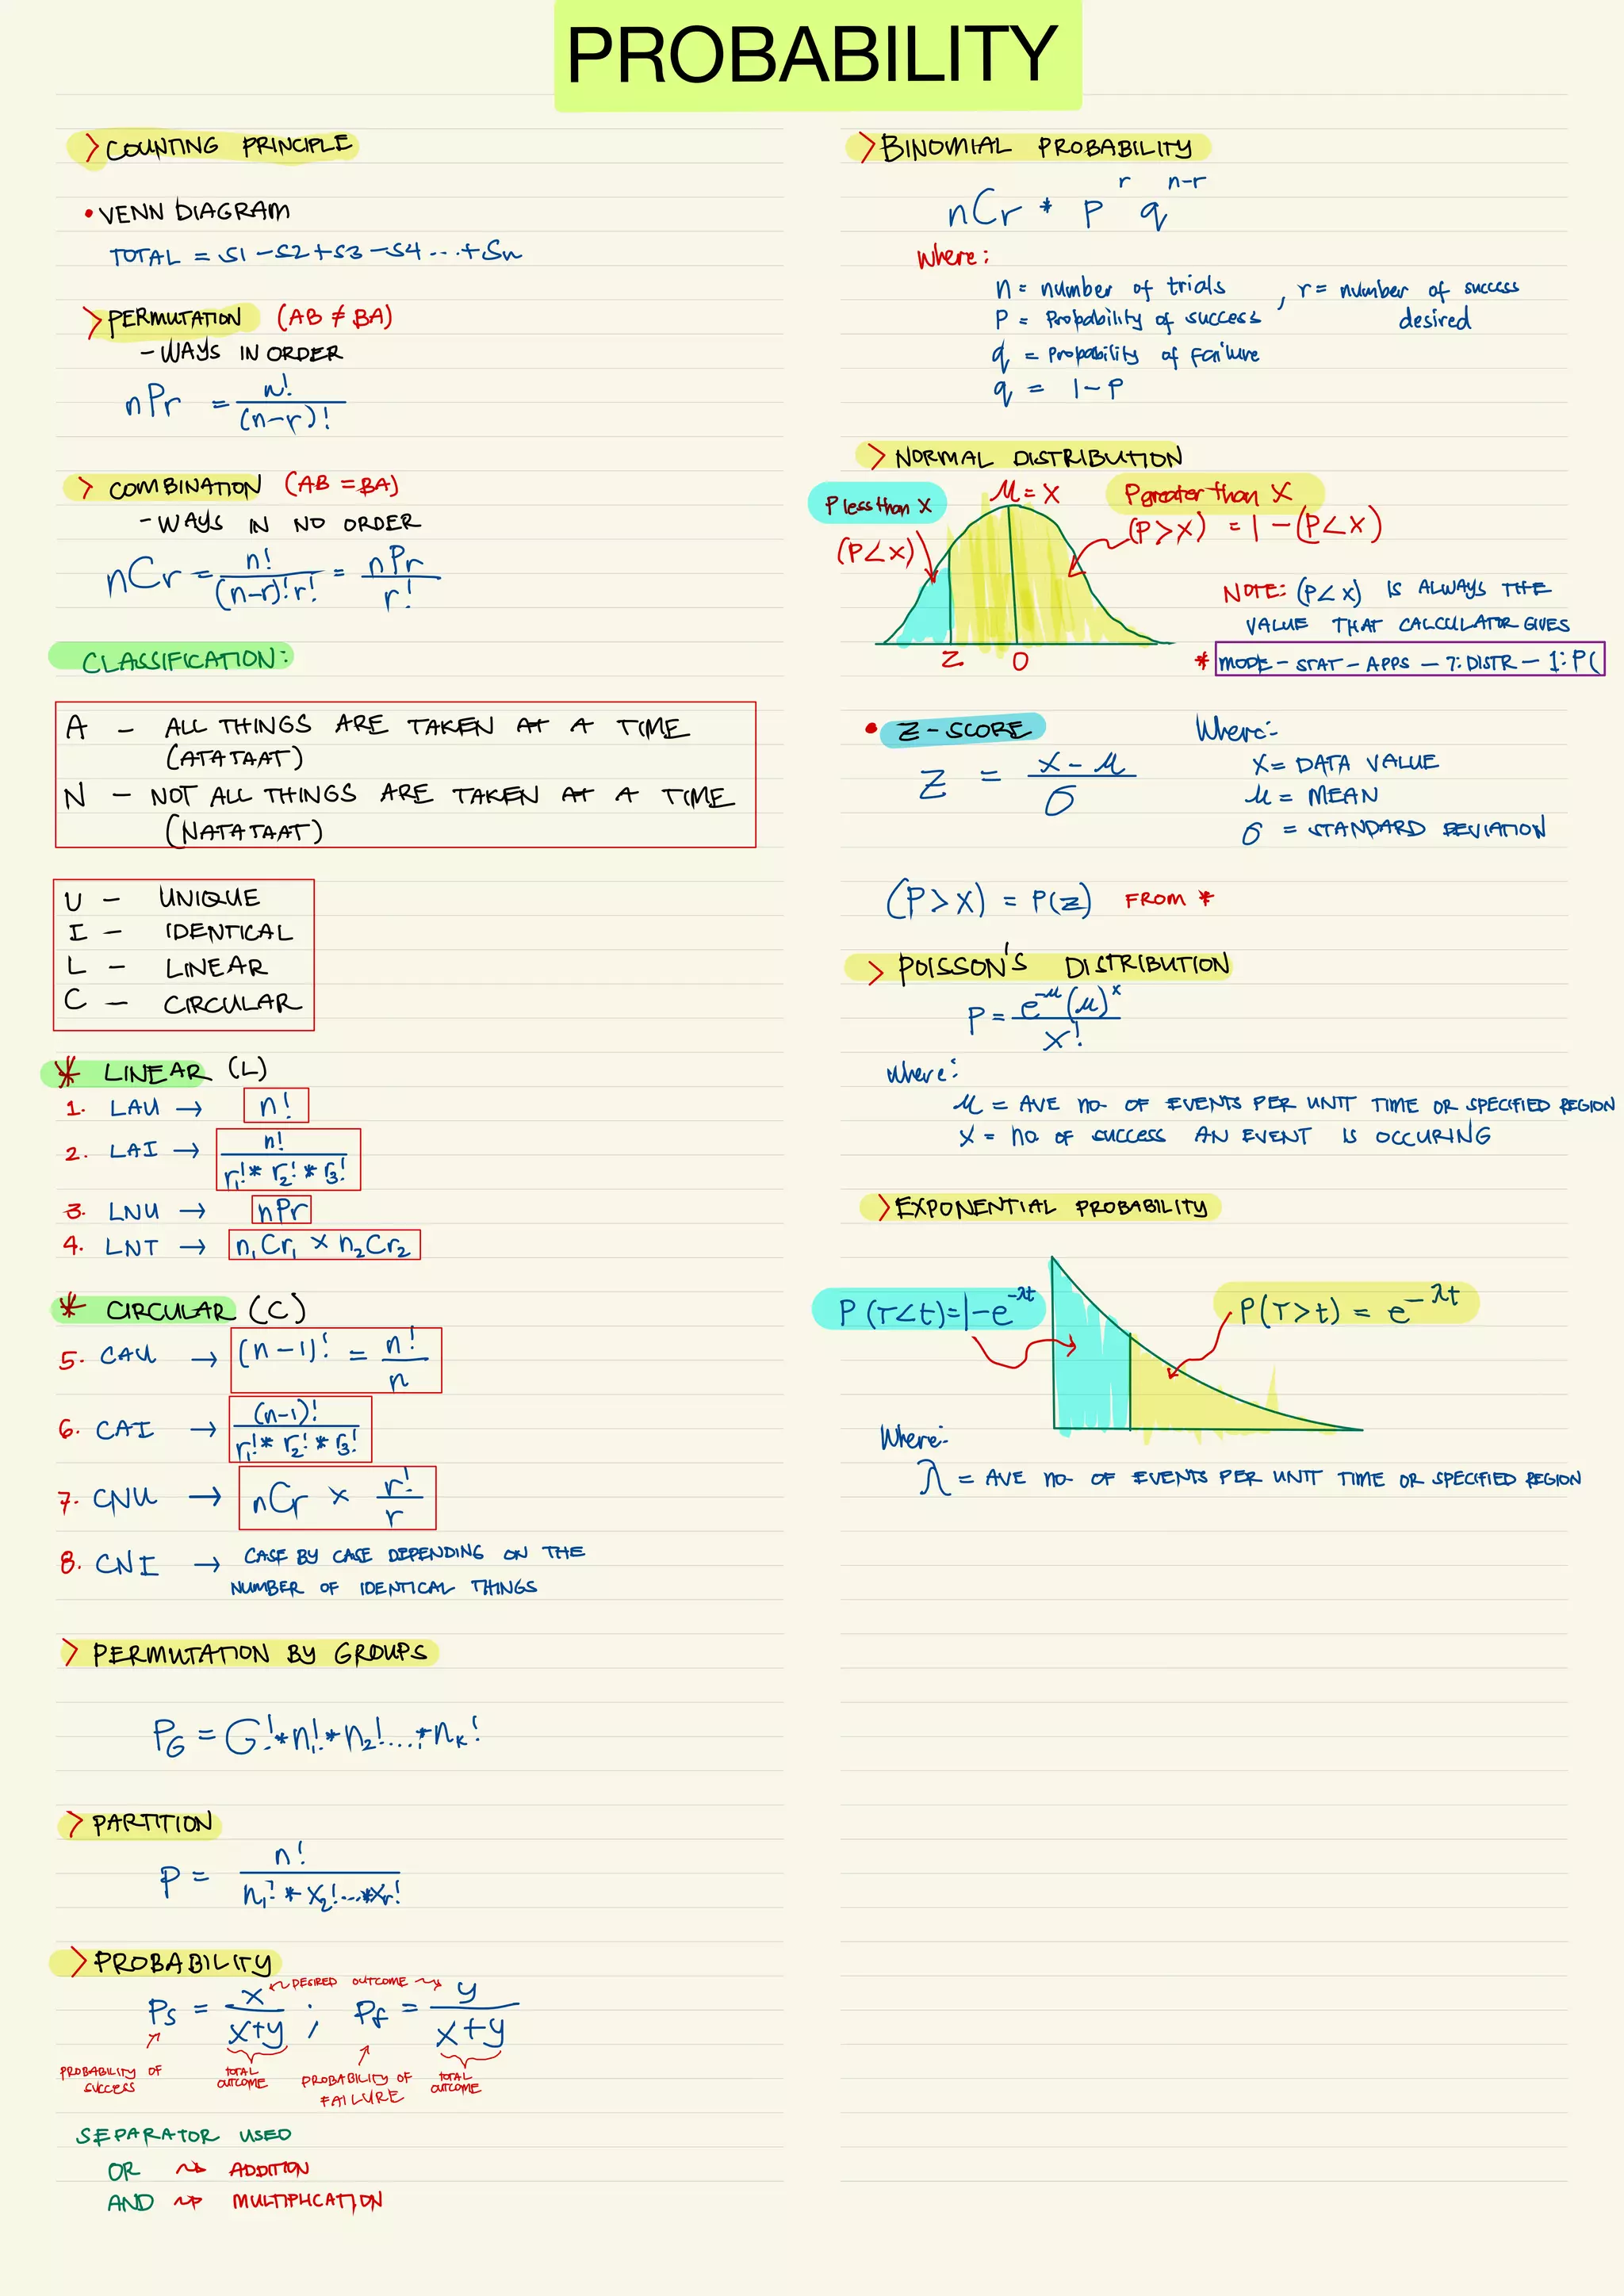 PROBABILITY
> COUNTING PRINCIPLE
• VENN DIAGRAM
TOTAL = S1 - S2 + S3 - S4 ... + Sn
> PERMUTATION (AB ≠ BA)
- WAYS IN ORDER
nPr = n! / (n-r)!
> COMBINATION (AB = BA)
- WAYS IN NO ORDER
nCr = n! / (n-r)! r! = nPr / r!
CLASSIFICATION:
A - ALL THINGS ARE TAKEN AT A TIME
(ATATAAT)
N - NOT ALL THINGS ARE TAKEN AT A TIME
(NATATAAT)
U - UNIQUE
I - IDENTICAL
L - LINEAR
C - CIRCULAR
* LINEAR (L)
1. LAU → n!
2. LAI → n! / r₁! * r₂! * r₃!
3. LNU → nPr
4. LNT → n₁Cr₁ × n₂Cr₂
* CIRCULAR (C)
5. CAU → (n-1)! = n! / n
6. CAI → (n-1)! / r₁! * r₂! * r₃!
7. CNU → nCr × r! / r
8. CNI → CASE BY CASE DEPENDING ON THE
NUMBER OF IDENTICAL THINGS
> PERMUTATION BY GROUPS
P_G = G! * n₁! * n₂! ... * nₖ!
> PARTITION
P = n! / n₁! * x₂! ... * xᵣ!
> PROBABILITY
DESIRED OUTCOME
Ps = x / x+y ; Pf = y / x+y
PROBABILITY OF SUCCESS
TOTAL OUTCOME
PROBABILITY OF FAILURE
TOTAL OUTCOME
SEPARATOR USED
OR → ADDITION
AND → MULTIPLICATION
> BINOMIAL PROBABILITY
nCr * p^r q^(n-r)
Where:
n = number of trials , r = number of success
P = Probability of success desired
q = probability of failure
q = 1 - P
> NORMAL DISTRIBUTION
P less than X
μ = X
P greater than X
(P<X)
(P>X) = 1 - (P<X)
NOTE: (P<X) IS ALWAYS THE
VALUE THAT CALCULATOR GIVES
Z 0
* MODE - STAT - APPS - 7: DISTR - 1: P(
• Z-SCORE
Z = X - μ / σ
Where:
X = DATA VALUE
μ = MEAN
σ = STANDARD DEVIATION
(P>X) = P(Z) FROM *
> POISSON'S DISTRIBUTION
P = e^-μ (μ)^x / x!
Where:
μ = AVE no. OF EVENTS PER UNIT TIME OR SPECIFIED REGION
X = no. OF SUCCESS AN EVENT IS OCCURING
> EXPONENTIAL PROBABILITY
P(T<t) = 1 - e^-λt
P(T>t) = e^-λt
Where:
λ = AVE no. OF EVENTS PER UNIT TIME OR SPECIFIED REGION